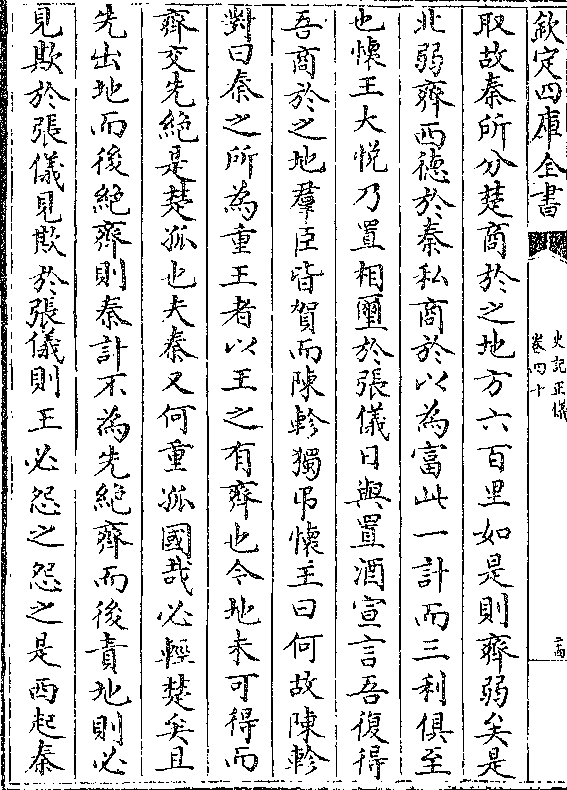 欽定四庫全書
史記正義
卷四十
二十四
取故秦所分楚商於之地方六百里如是則齊弱矣是
北弱齊西德於秦私商於以為富此一計而三利俱至
也懷王大悅乃置相璽於張儀日與置酒宣言吾復得
吾商於之地羣臣皆賀而陳軫獨弔懷王曰何故陳軫
對曰秦之所為重王者以王之有齊也今地未可得而
齊交先絶是楚孤也夫秦又何重孤國哉必輕楚矣且
先出地而後絶齊則秦計不為先絶齊而後責地則必
見欺於張儀見欺於張儀則王必怨之怨之是西起秦